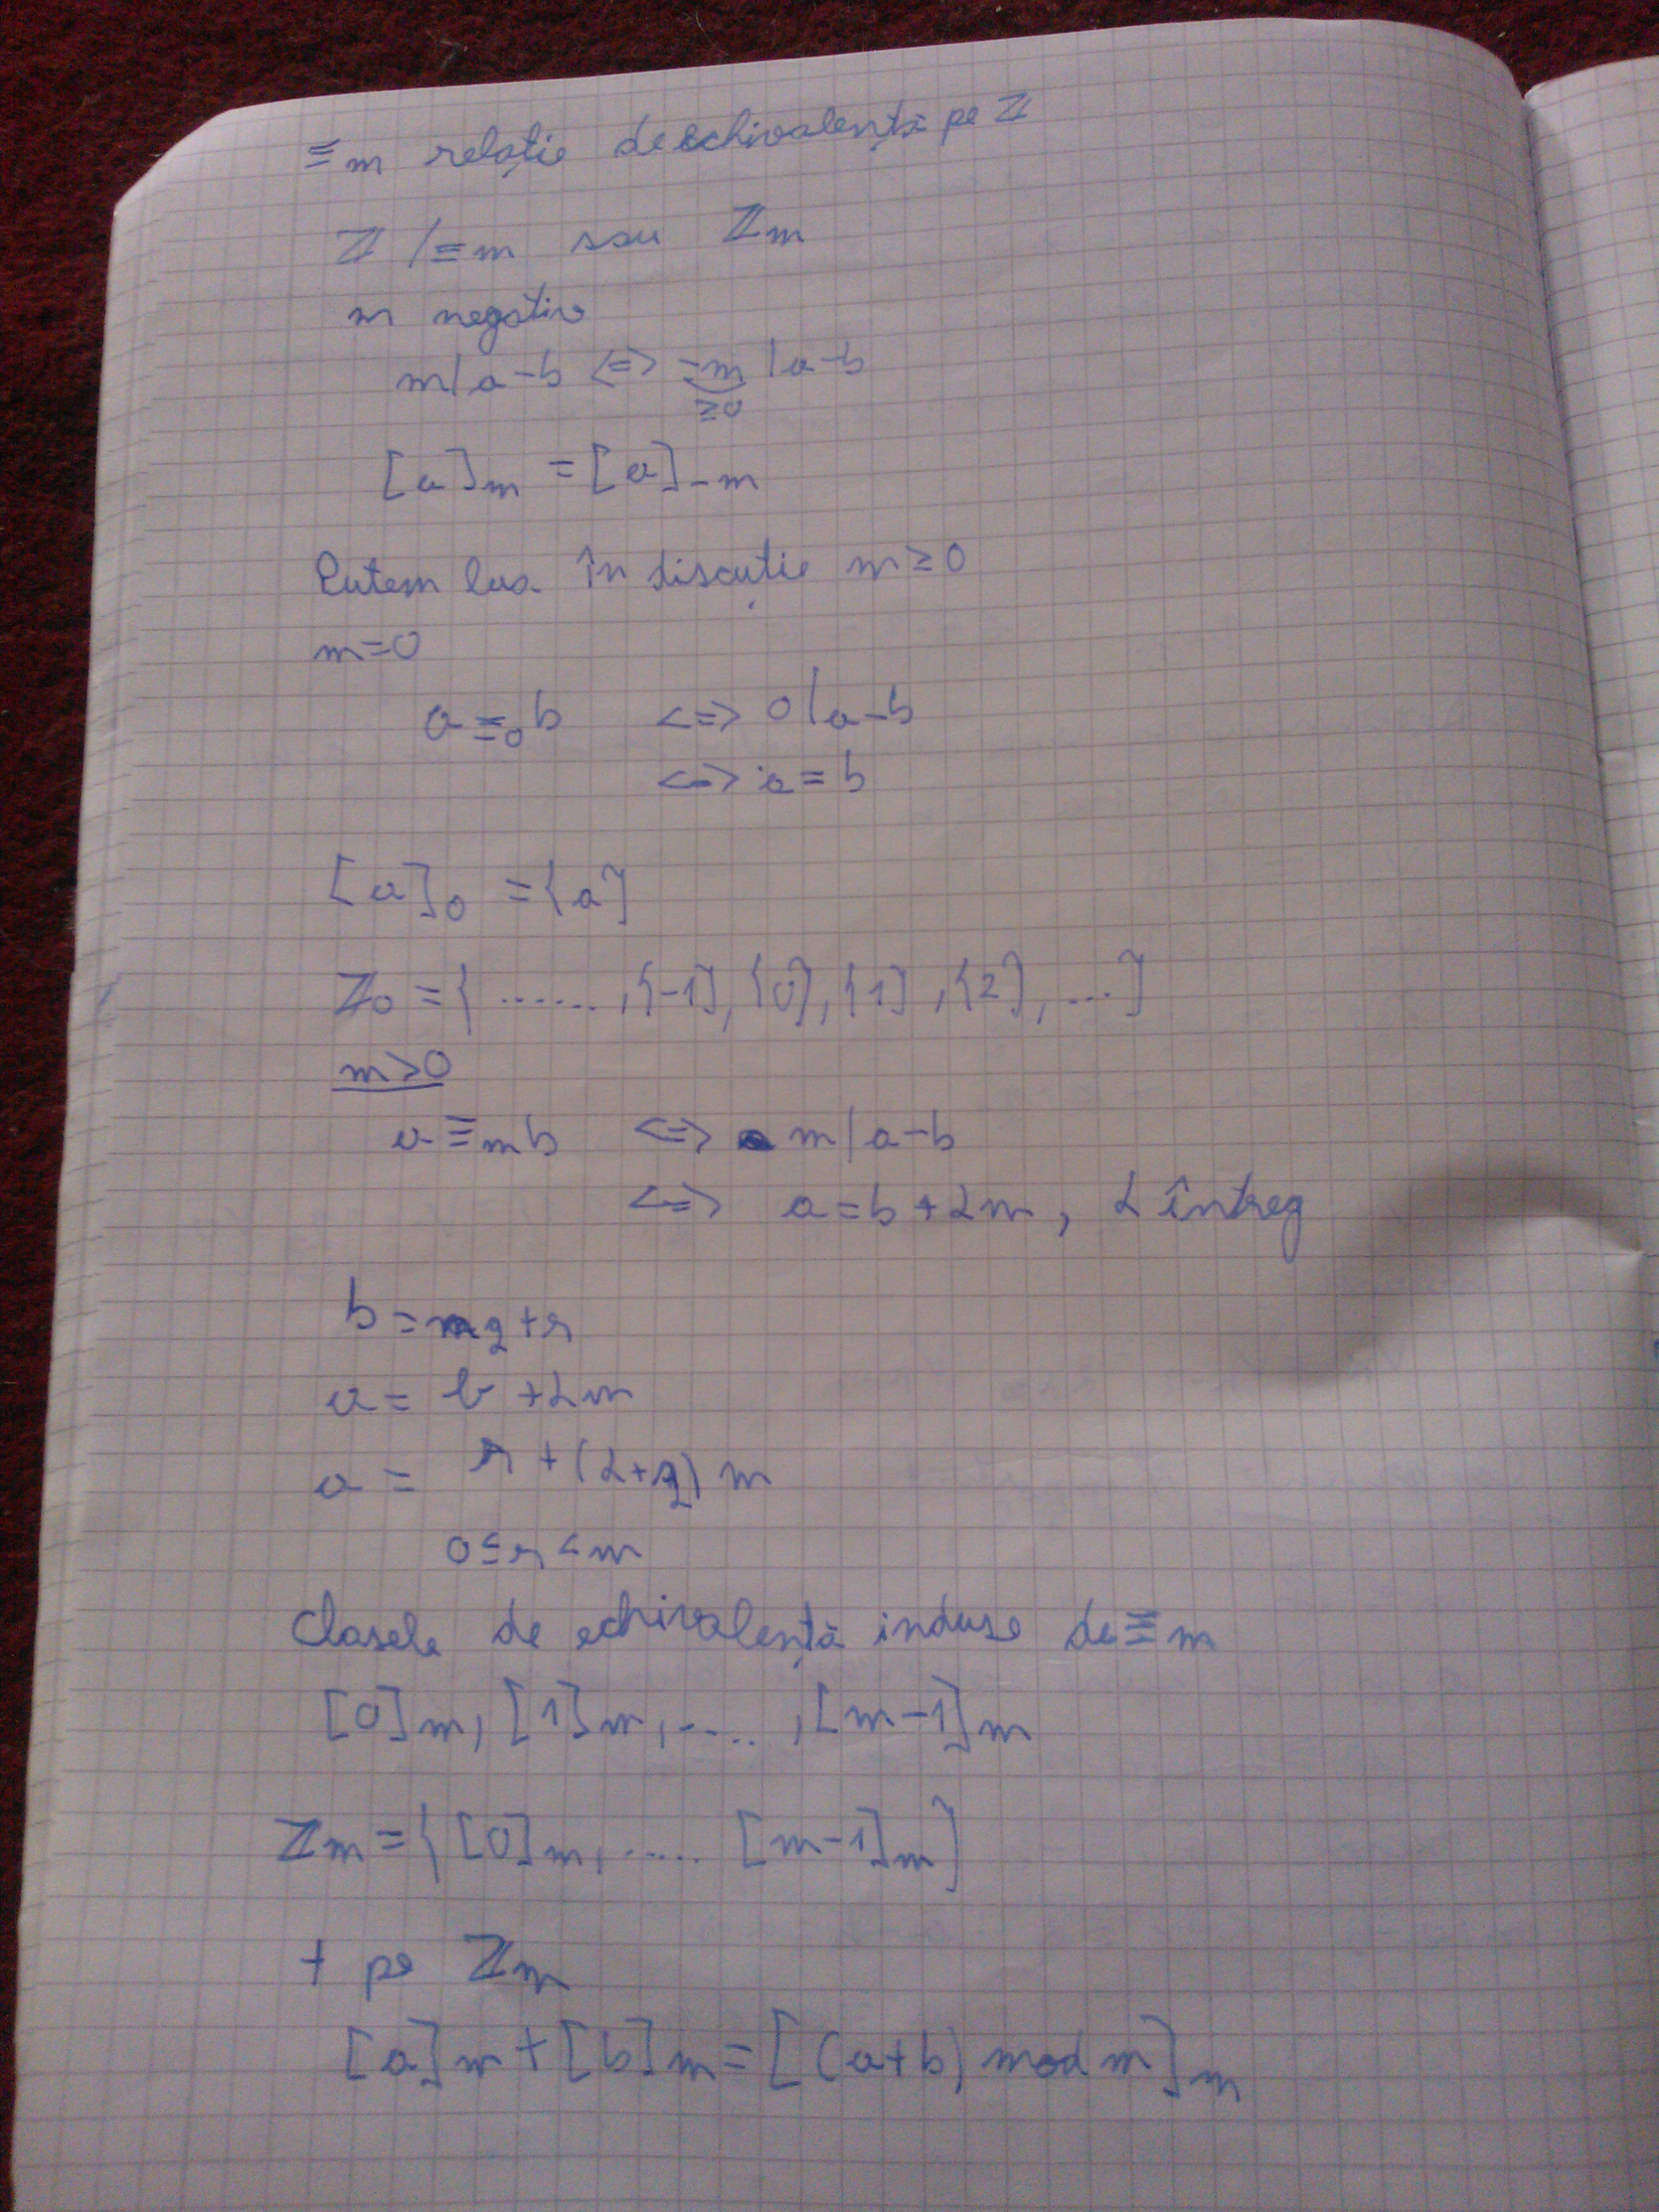 ≡m relație de echivalență pe ℤ
ℤ/≡m sau ℤm
m negativ
m|a-b <=> -m|a-b
≥0
[a]m = [a]-m
Putem lua în discuție m≥0
m=0
a≡0b <=> 0|a-b
<=> a=b
[a]0 = {a}
ℤ0={......,{-1},{0},{1},{2},...}
m>0
a≡mb <=> m|a-b
<=> a=b+αm, α întreg
b=mq+r
a= b+αm
a= r+(α+q)m
0≤r<m
Clasele de echivalență induse de≡m
[0]m,[1]m,....,[m-1]m
ℤm={[0]m,..... [m-1]m}
+ pe ℤm
[a]m+[b]m=[(a+b) mod m]m